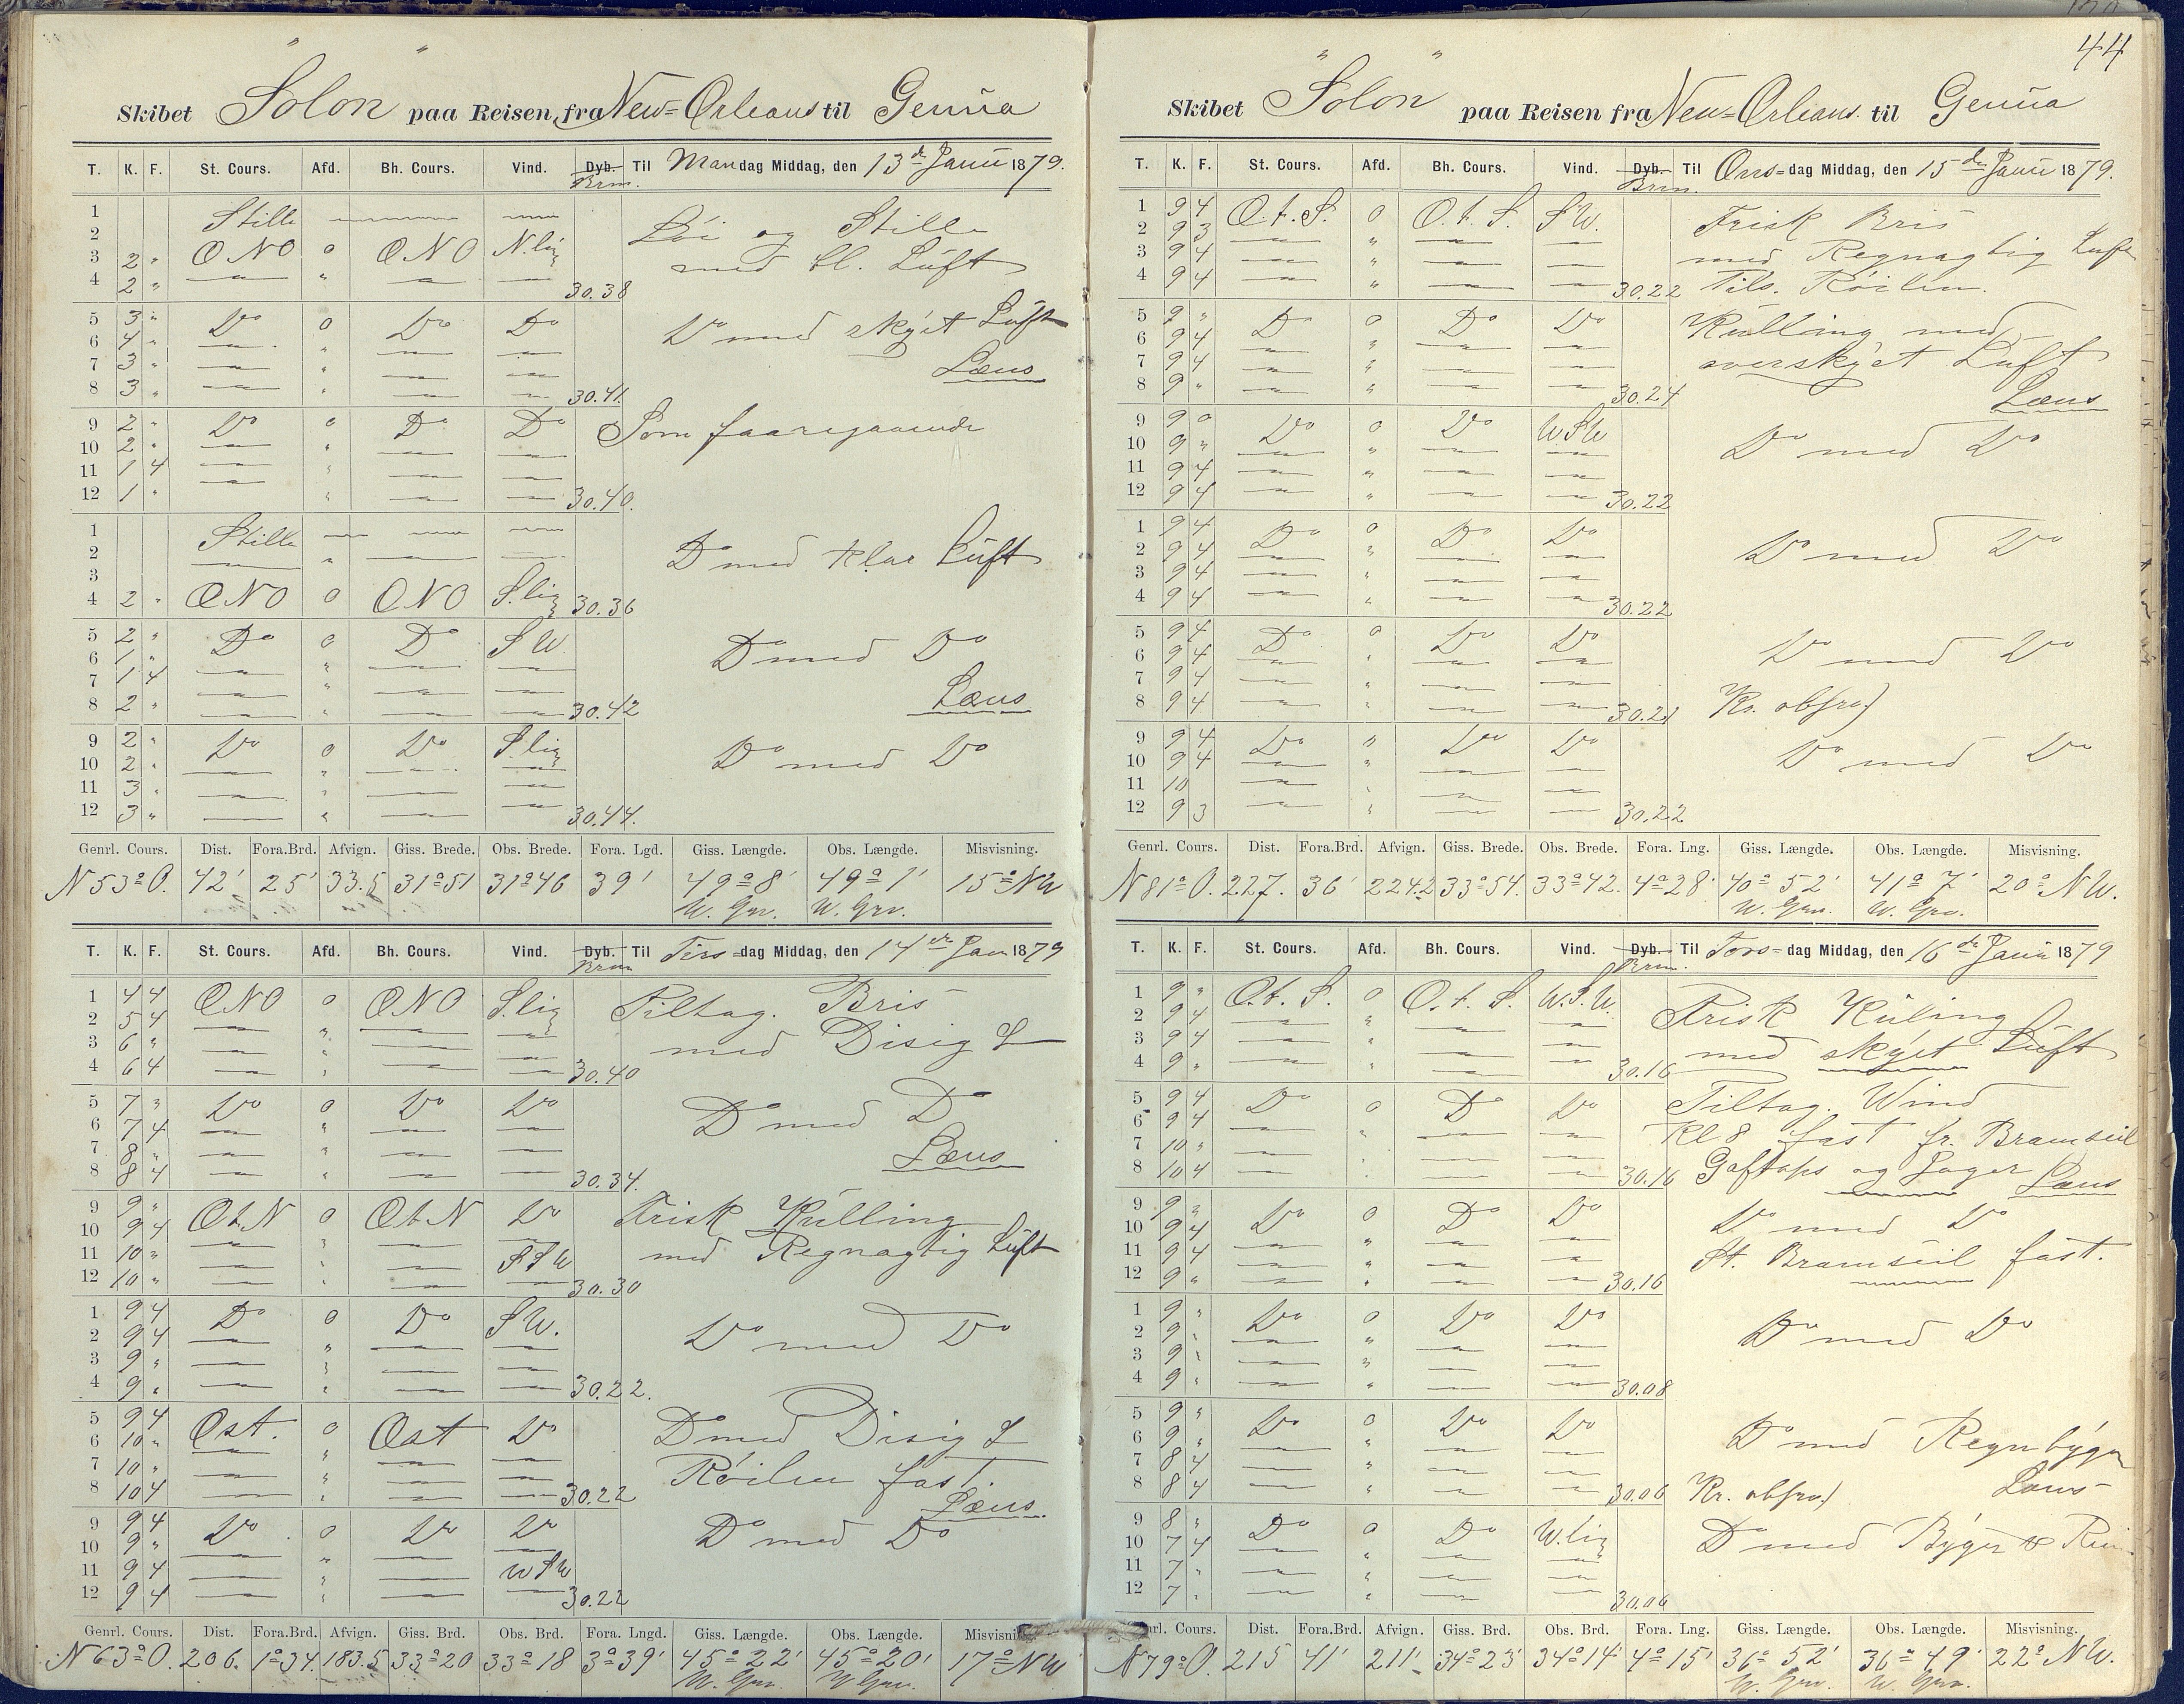 44
Skibet "Solon" paa Reisen fra New=Orleans til Genúa
T. K. F. St. Cours. Afd. Bh. Cours. Vind. Dyb. Brm. Til Mandag Middag, den 13de Janú 1879.
1 Stille
2
3 2 " ONO 0 ONO N.lig
4 2 " " 30.38
Löi og Stille
med kl. Lúft
5 3 " Do 0 Do Do
6 4 " "
7 3 " "
8 3 " " 30.41.
Do med skýet Lúft
Læns
9 2 " Do 0 Do Do
10 2 " "
11 1 4 "
12 1 " " 30.40.
Som faaregaaende
1 Stille
2 "
3
4 2 " ONO 0 ONO S.lig 30.36
Do med klar Lúft
5 2 " Do 0 Do SW.
6 1 " "
7 1 4 "
8 2 " " 30.42
Do med Do
Læns
9 2 " Do 0 Do S.lig
10 2 " "
11 3 " "
12 3 " " 30.44.
Do med Do
Genrl. Cours. Dist. Fora.Brd. Afvign. Giss. Brede. Obs. Brede. Fora. Lgd. Giss. Længde. Obs. Længde. Misvisning.
N53°O. 42' 25' 33.5 31°51 31°46 39' 49°8' 49°1' 15°NW
W. Grv. W. Grv.
T. K. F. St. Cours. Afd. Bh. Cours. Vind. Dyb. Brm Til Tirs=dag Middag, den 14de Jan 1879
1 4 4 ONO 0 ONO S.lig
2 5 4 "
3 6 " "
4 6 4 " 30.40
Tiltag. Bris
med Disig L
5 7 " Do 0 Do Do
6 7 4 "
7 8 " "
8 8 4 " 30.34.
Do med Do
Læns
9 9 " OtN 0 OtN Do
10 9 4 "
11 10 " " SSW
12 10 " " 30.30
Frisk Kúlling
med Regnagtig Lúft
1 9 4 Do 0 Do SW.
2 9 4 "
3 9 " "
4 9 " " 30.22.
Do med Do
5 9 4 Ost. 0 Ost Do
6 10 " "
7 10 " "
8 10 4 " 30.22
Do med Disig L
Röilen fast.
Læns.
9 9 4 Do 0 Do Do
10 9 " "
11 9 4 " WSW
12 9 4 " 30.22
Do med Do
Genrl. Cours. Dist. Fora.Brd. Afvign. Giss. Brd. Obs. Brd. Fora. Lngd. Giss. Længde. Obs. Længde. Misvisning
N63°O. 206. 1°34. 183.5 33°20 33°18 3°39' 45°22' 45°20' 17°NW
W. Grv. W Grv.
Skibet "Solon" paa Reisen fra New=Orleans. til Genúa
T. K. F. St. Cours. Afd. Bh. Cours. Vind. Dyb. Brm. Til Ons=dag Middag, den 15de Janú 1879.
1 9 4 O.t.S. 0 O.t.S. SW.
2 9 3 "
3 9 4 "
4 9 4 " 30.22
Frisk Bris
med Regnagtig Lúft
Tils. Röilen.
5 9 " Do 0 Do Do
6 9 4 "
7 9 4 "
8 9 " " 30.24
Kúlling med
overskýet Lúft
Læns
9 9 0 Do 0 Do WSW
10 9 " "
11 9 4 "
12 9 4 " 30.22
Do med Do
1 9 4 Do 0 Do Do
2 9 4 "
3 9 4 "
4 9 4 " 30.22
Do med Do
5 9 4 Do 0 Do Do
6 9 4 "
7 9 4 "
8 9 4 " 30.21
Do med Do
Kr. obsrv.)
9 9 4 Do " Do Do
10 9 4 "
11 10 "
12 9 3 " 30.22
Do med Do
Genrl. Cours. Dist. Fora.Brd. Afvign. Giss. Brede. Obs. Brede. Fora. Lng. Giss. Længde. Obs. Længde. Misvisning.
N81°O. 227. 36' 224.2 33°54. 33°42. 4°28' 40°52' 41°7' 20°NW.
W. Grv. W. Grv.
T. K. F. St. Cours. Afd. Bh. Cours. Vind. Dyb. Brm. Til Tors=dag Middag, den 16de Janú 1879
1 9 " O.t.S. 0 O.t.S. W.S.W.
2 9 4 "
3 9 4 "
4 9 " " 30.16
Frisk Kúling
med skýet Lúft
5 9 4 Do 0 Do Do
6 9 4 "
7 10 " "
8 10 4 " 30.16
Tiltag. Wind
Kl 8 fast fr. Bramseil
Gaftops og Jager Læns
9 9 " Do 0 Do Do
10 9 4 "
11 9 4 "
12 9 " " 30.16
Do med Do
St. Bramseil fast.
1 9 " Do 0 Do Do
2 9 " "
3 9 " "
4 9 " " 30.08
Do med Do
5 9 " Do 0 Do Do
6 9 " "
7 8 4 "
8 8 4 " 30.06
Do med Regnbýger
Kr. obsrv.) Læns
9 8 " Do 0 Do W.lig
10 7 4 "
11 7 " "
12 7 " " 30.06
Do med Býger
Genrl. Cours. Dist. Fora.Brd. Afvign. Giss. Brd. Obs. Brd. Fora. Lng. Giss. Længde. Obs. Længde. Misvisning.
N79°O. 215 41' 211' 34°23' 34°14' 4°15' 36°52' 36°49' 22°NW.
W. Grv. W. Grv.